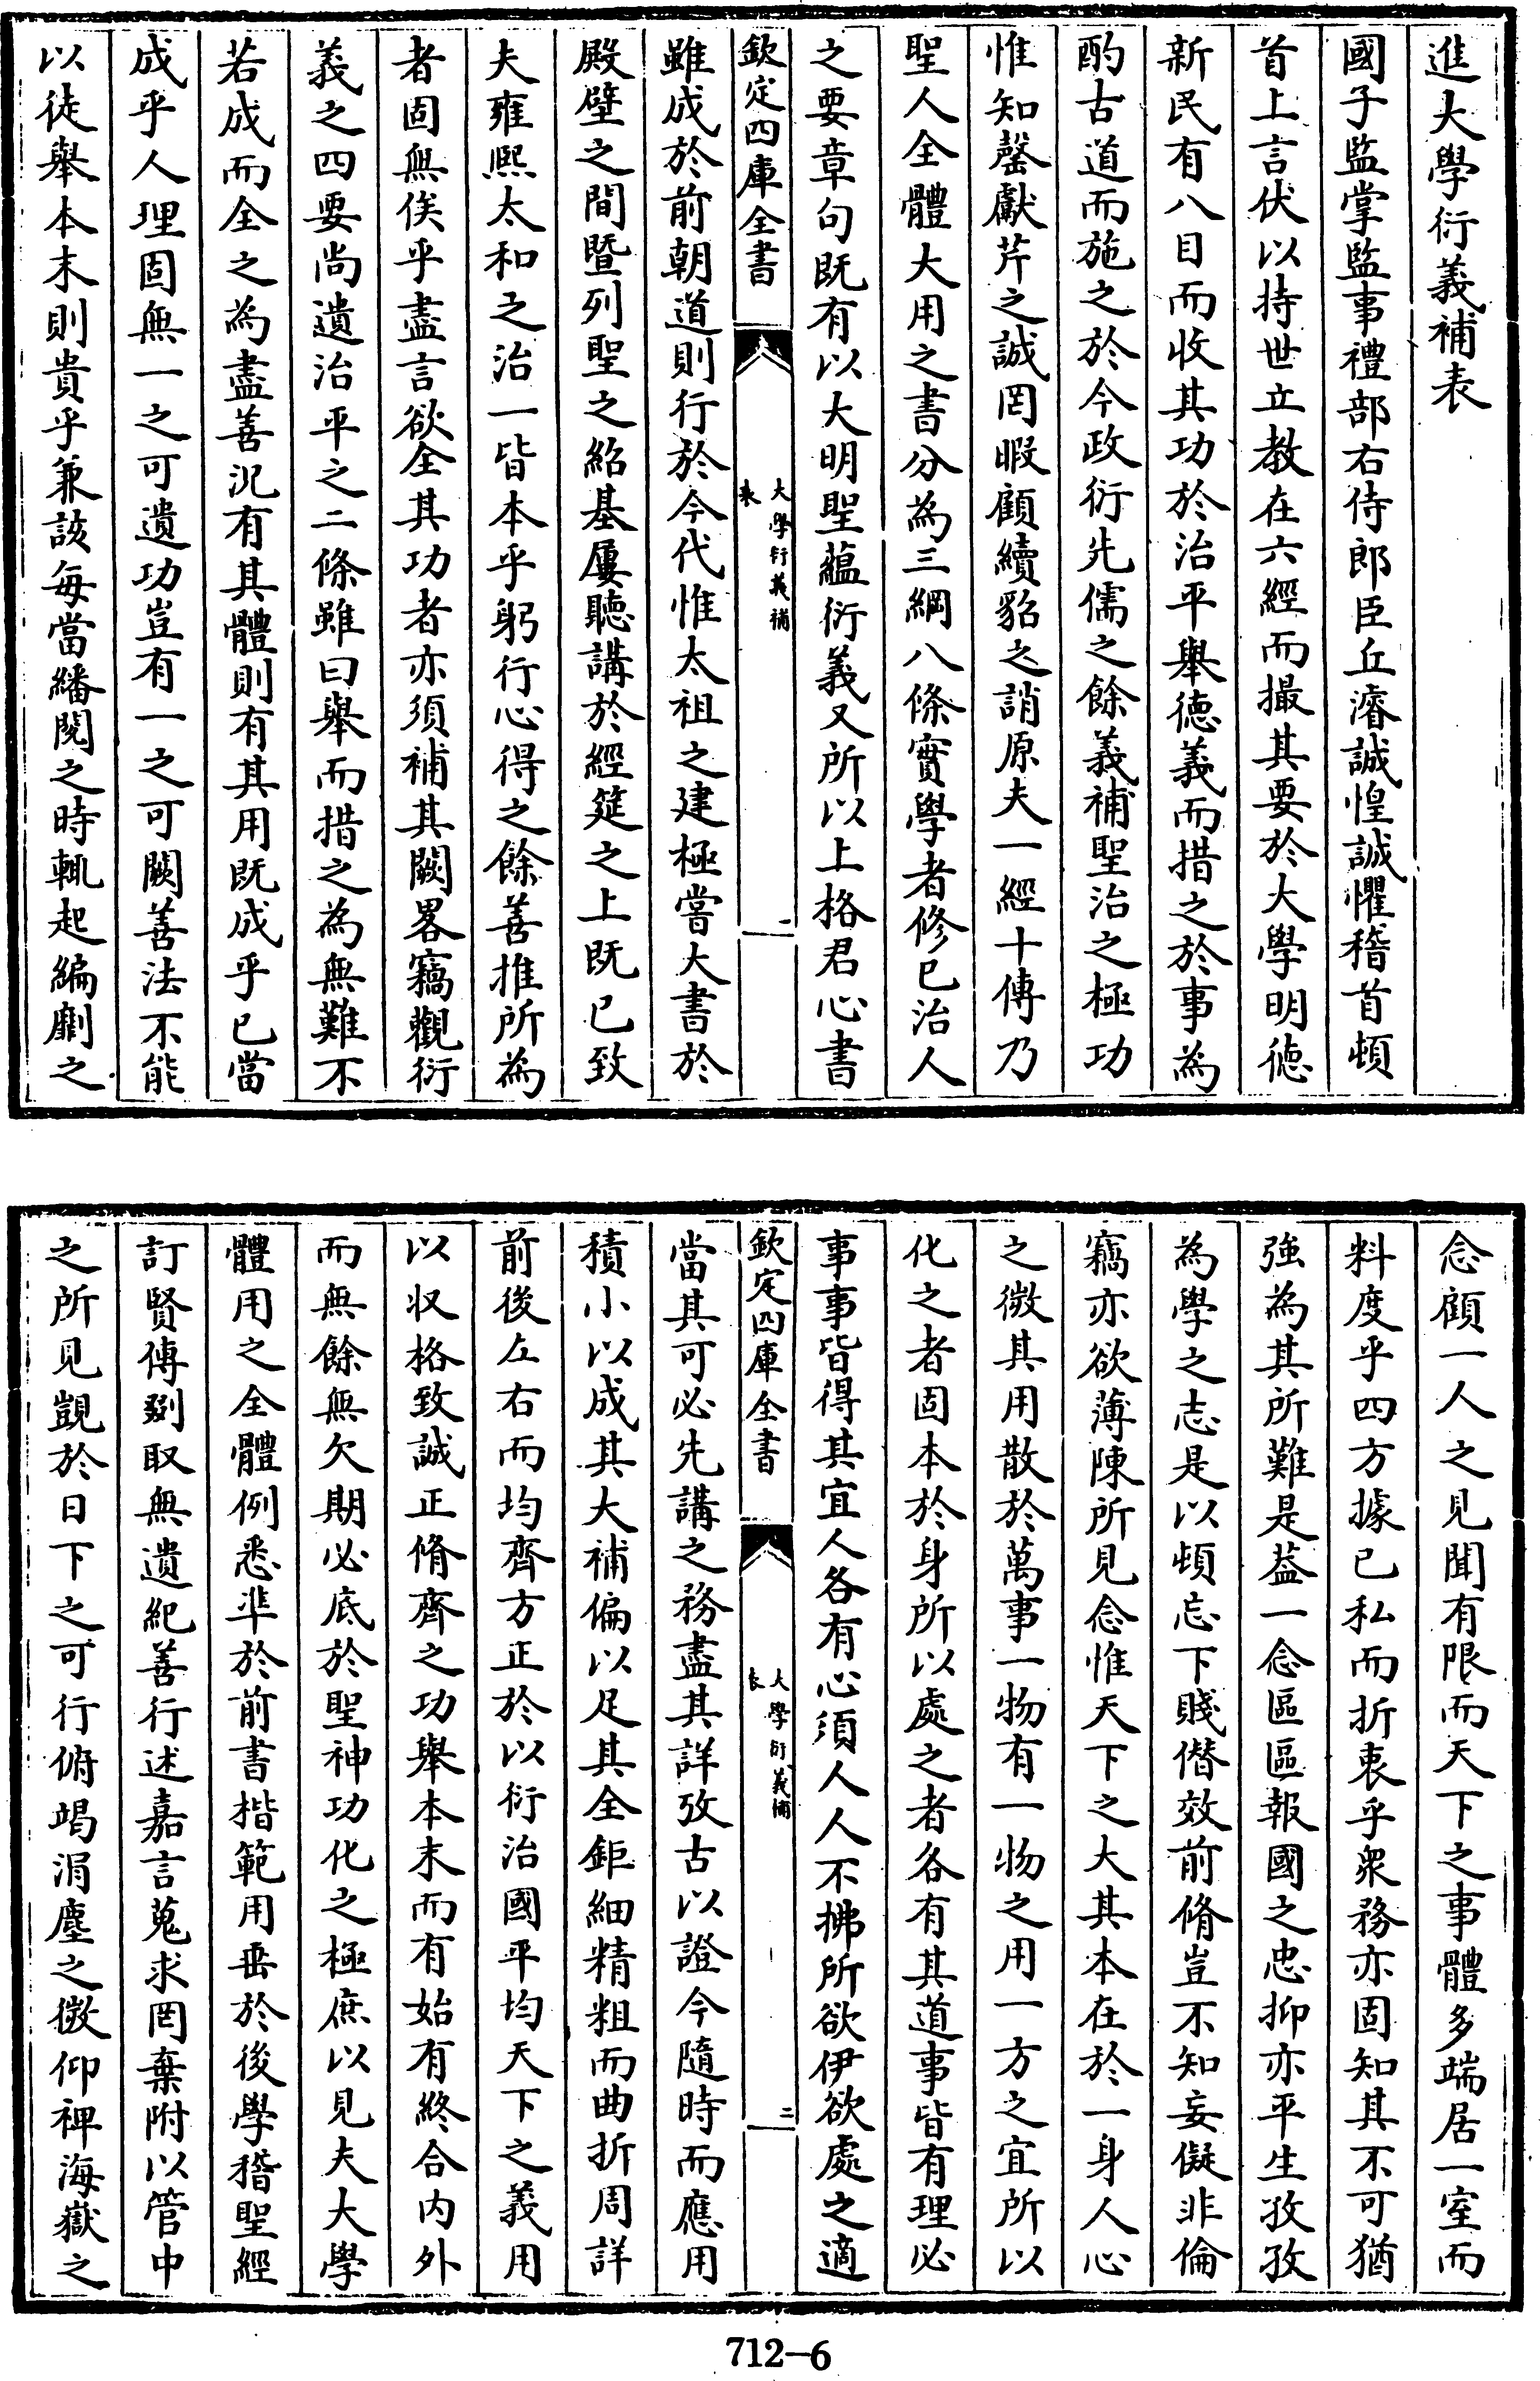 進大學衍義補表
國子監掌監事禮部右侍郎臣丘濬誠惶誠懼稽首頓
首上言伏以持世立教在六經而撮其要於大學明德
新民有八目而收其功於治平舉德義而措之於事為
酌古道而施之於今政衍先儒之餘義補聖治之極功
惟知罄獻芹之誠罔暇顧續貂之誚原夫一經十傳乃
聖人全體大用之書分為三綱八條實學者修已治人
之要章句既有以大明聖蘊衍義又所以上格君心書
欽定四庫全書
大學衍義補
表
一
雖成於前朝道則行於今代惟太祖之建極嘗大書於
殿壁之間暨列聖之紹基屢聽講於經筵之上既已致
夫雍熙太和之治一皆本乎躬行心得之餘善推所為
者固無俟乎盡言欲全其功者亦須補其闕畧竊觀衍
義之四要尚遺治平之二條雖曰舉而措之為無難不
若成而全之為盡善況有其體則有其用既成乎已當
成乎人理固無一之可遺功豈有一之可闕善法不能
以徒舉本末則貴乎兼該每當繙閱之時輒起編劘之
念顧一人之見聞有限而天下之事體多端居一室而
料度乎四方據已私而折衷乎衆務亦固知其不可猶
強為其所難是葢一念區區報國之忠抑亦平生孜孜
為學之志是以頓忘下賤僭效前脩豈不知妄儗非倫
竊亦欲薄陳所見念惟天下之大其本在於一身人心
之微其用散於萬事一物有一物之用一方之宜所以
化之者固本於身所以處之者各有其道事皆有理必
事事皆得其宜人各有心須人人不拂所欲伊欲處之適
欽定四庫全書
大學衍義補
表
二
當其可必先講之務盡其詳攷古以證今隨時而應用
積小以成其大補偏以足其全鉅細精粗而曲折周詳
前後左右而均齊方正於以衍治國平均天下之義用
以收格致誠正脩齊之功舉本末而有始有終合內外
而無餘無欠期必底於聖神功化之極庶以見夫大學
體用之全體例悉準於前書楷範用垂於後學稽聖經
訂賢傳剟取無遺紀善行述嘉言蒐求罔棄附以管中
之所見覬於日下之可行俯竭涓塵之微仰裨海嶽之
712-6